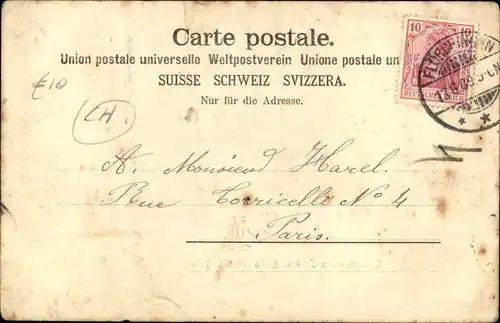 Carte postale.
Union postale universelle Weltpostverein Unione postale un
SUISSE SCHWEIZ SVIZZERA.
Nur für die Adresse.
10 10
€10
CH
A. Monsieud Harel.
Rue Torricelle No 4
Paris.